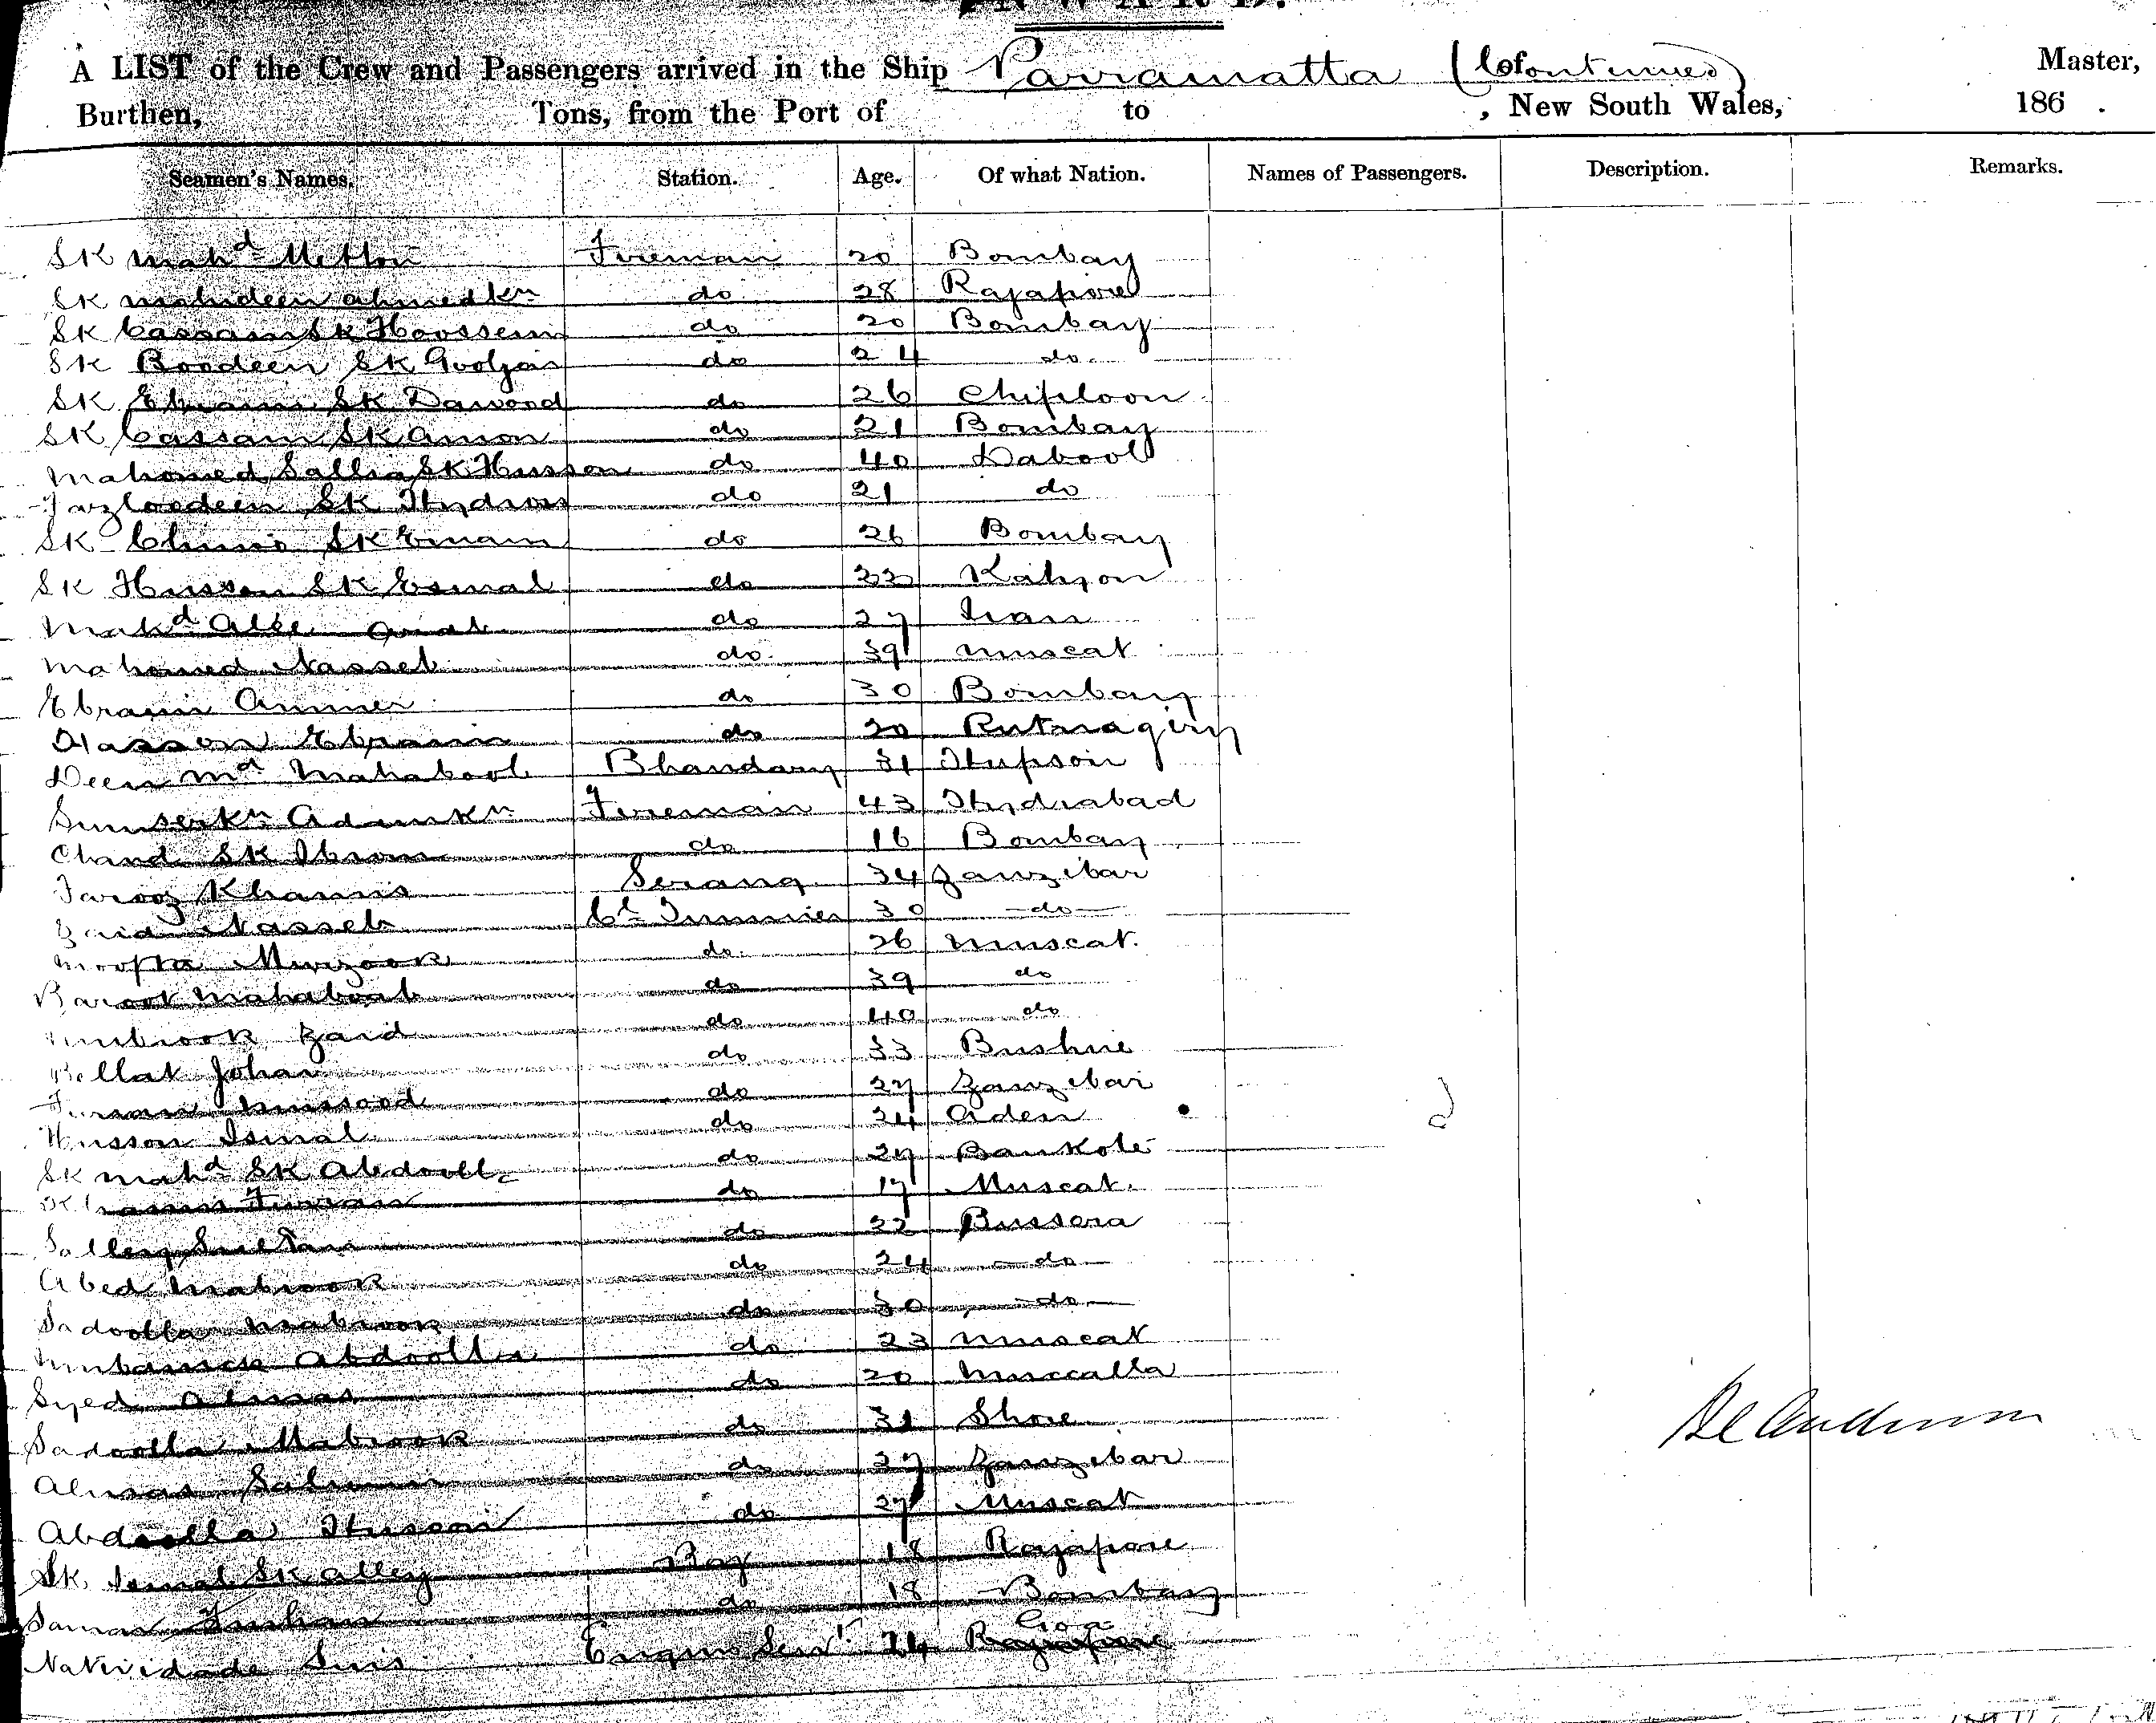 INWARD.
A LIST of the Crew and Passengers arrived in the Ship Parramatta (Continued) Master,
Burthen, Tons, from the Port of to , New South Wales, 186 .
Seamen's Names. Station. Age. Of what Nation. Names of Passengers. Description. Remarks.
SK Mahd Fireman 20 Bombay
SK Mahideen Ahmedkn do 28 Rajapore
SK Cassam SK Hoossein do 20 Bombay
SK Boodeen SK do 24 do
SK Ebraim SK Dawood do 26 Chiploon
SK Cassam SK Amon do 21 Bombay
Mahomed Sallia SK Husson do 40 Dabool
Fazloodeen SK Hydroos do 21 do
SK SK Emam do 26 Bombay
SK Husson SK Esmal do 22
Mahd do 27
Mahomed Nasseb do 39 Muscat
Ebraim Ammer do 30 Bombay
Hasson Ebraim do 20 Rutnagiry
Deen Md Mahaboob Bhandary 31
Sumserkn Adamkn Fireman 43 Hydrabad
Chand SK Ibram do 16 Bombay
Farooz Khamis Serang 34 Zanzibar
Zaid Nasseb Cl Trimmer 30 do
Moofta Murzook do 26 Muscat
Baroot Mahaboob do 39 do
Mubrook Zaid do 40 do
Bellat Johar do 33 Bushire
Mussood do 27 Zanzibar
Husson Ismal do 24 Aden
SK Mahd SK Abdoolla do 27 Bankote
Khamis do 17 Muscat
Salley Sultan do 22 Bussera
Abed Mabrook do 24 do
Sadoolla Mabrook do 30 do
Mubarick Abdoolla do 23 Muscat
Syed Almas do 20 Muccalla
Sadoolla Mabrook do 31 Shore
Almas Salumin do 27 Zanzibar
Abdoolla Husson do 27 Muscat
SK Ismal SK Alley Boy 18 Rajapore
do 18 Bombay
Goa
Natividade Luis Engrs Servt 24 Rajapore